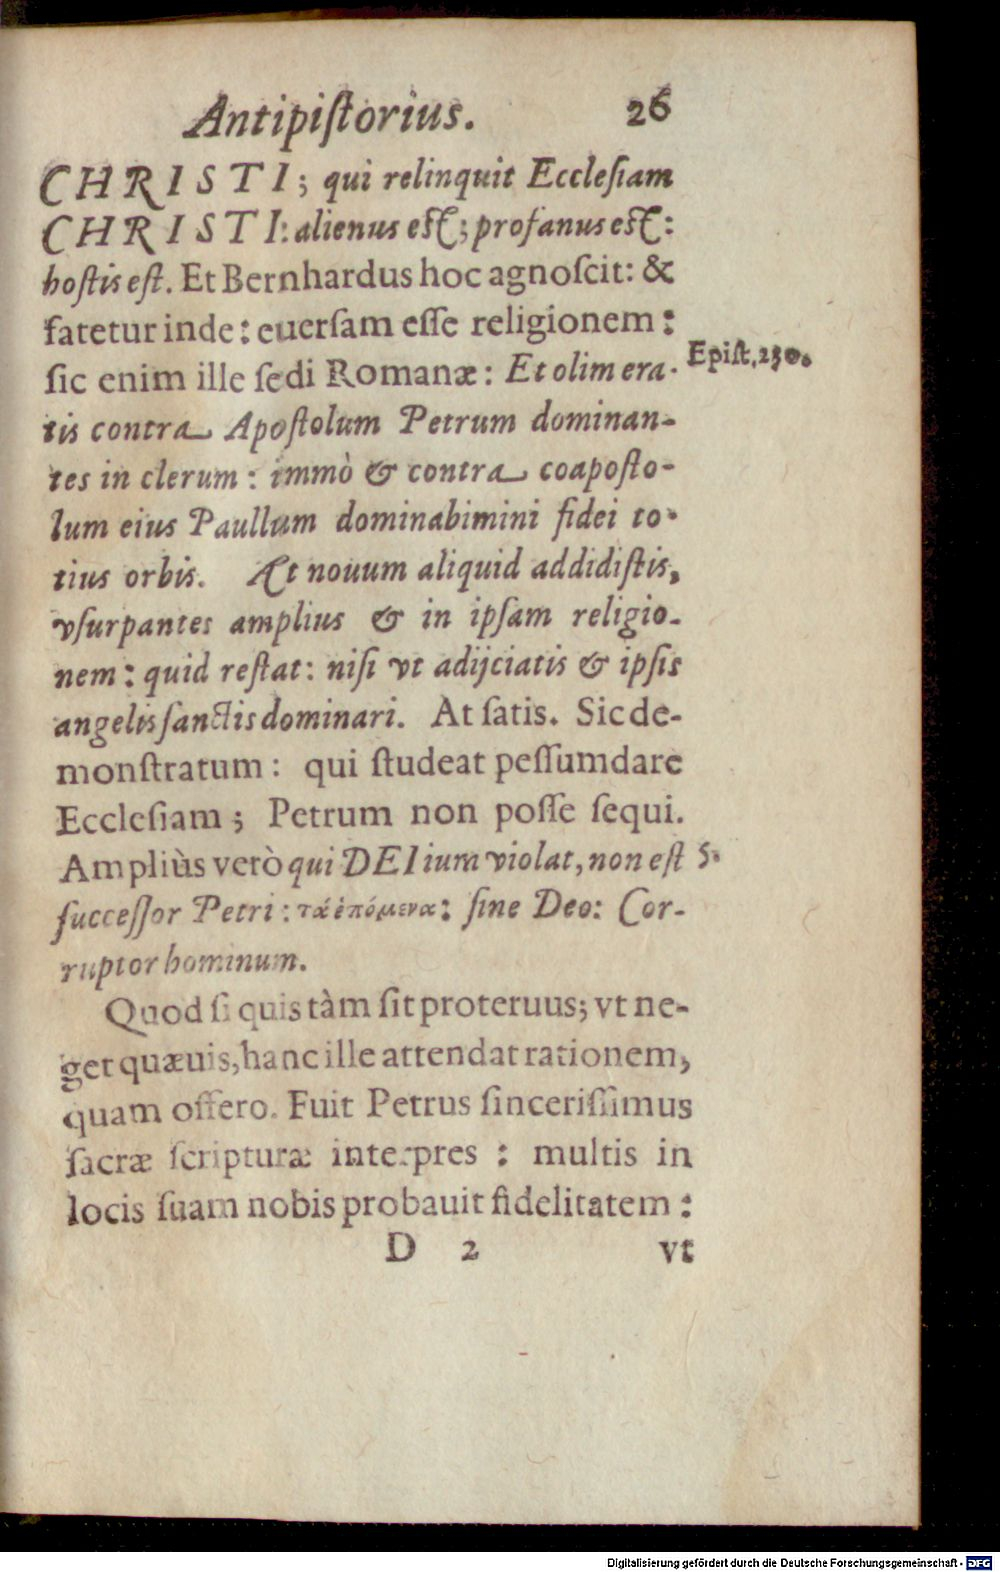 Antipiſtorius. 26
CHRISTI; qui relinquit Eccleſiam
CHRISTI: alienus eſt; profanus eſt:
hoſtis eſt. Et Bernhardus hoc agnoſcit: &
fatetur inde: euerſam eſſe religionem:
ſic enim ille ſedi Romanæ: Et olim era-
Epiſt. 230.
tis contra Apoſtolum Petrum dominan-
tes in clerum: immò & contra coapoſto-
lum eius Paullum dominabimini fidei to-
tius orbis. Æt nouum aliquid addidiſtis,
vſurpantes amplius & in ipſam religio-
nem: quid reſtat: niſi vt adijciatis & ipſis
angelis ſanctis dominari. At ſatis. Sic de-
monſtratum: qui ſtudeat peſſumdare
Eccleſiam; Petrum non poſſe ſequi.
Ampliùs verò qui DEI ium violat, non eſt 5.
ſucceſſor Petri: τά ἑπόμενα: ſine Deo: Cor-
ruptor hominum.
Quod ſi quis tàm ſit proteruus; vt ne-
get quæuis, hanc ille attendat rationem,
quam offero. Fuit Petrus ſinceriſſimus
ſacræ ſcripturæ interpres: multis in
locis ſuam nobis probauit fidelitatem:
D 2 vt
Digitalisierung gefördert durch die Deutsche Forschungsgemeinschaft - DFG